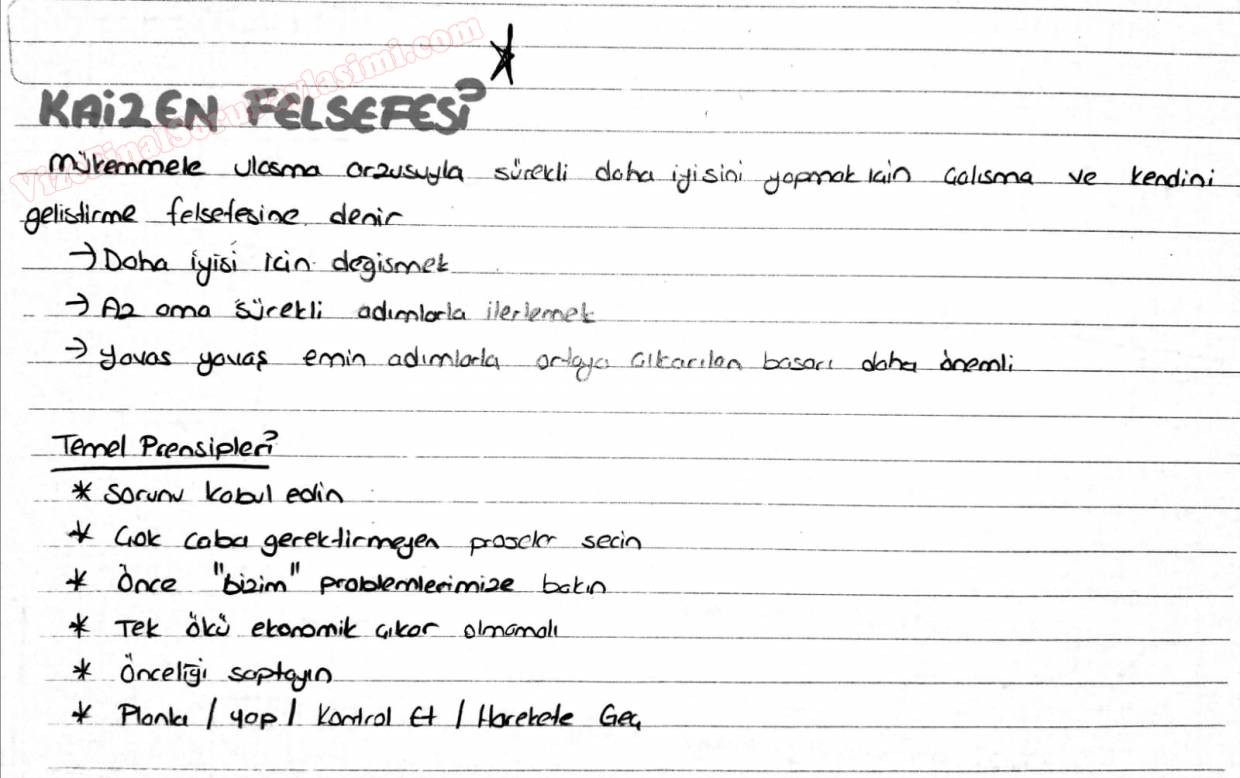 VizeFinalSoruPaylasimi.com
KAİZEN FELSEFESİ?
Mükemmele ulasma arzusuyla sürekli daha iyisini yapmak icin Calısma ve kendini
gelistirme felsefesine denir
→ Daha iyisi icin degismek
→ Az ama sürekli adımlarla ilerlemek
→ Yavas yavaş emin adımlarla ortaya cıkarılan basarı daha önemli
Temel Prensipleri?
* Sorunu kabul edin
* Çok caba gerektirmeyen projeler secin
* Önce "bizim" problemlerimize bakın
* Tek ökü ekonomik çıkar olmamalı
* Önceliği saptayın
* Planla / yap / Kontrol Et / Harekete Geç